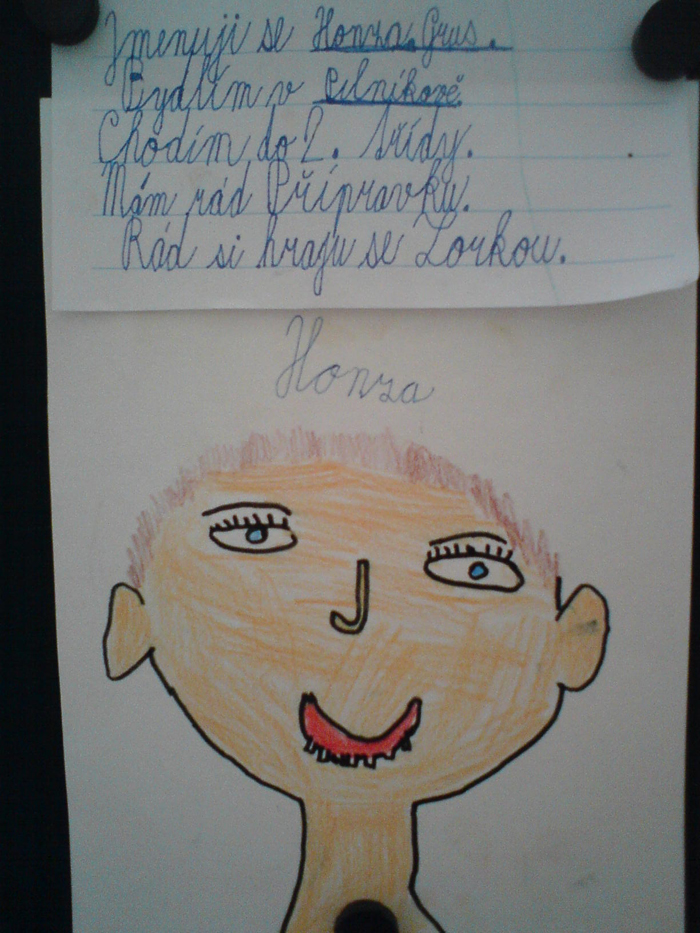 Jmenuji se Honza Grus.
Bydlím v Pilníkově
Chodím do 2. třídy.
Mám rád Přípravku.
Rád si hraju se Lorkou.
Honza